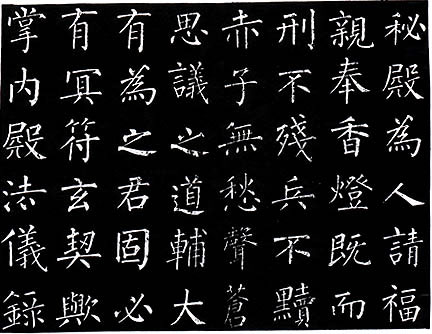 秘殿為人請福
親奉香燈既而
刑不殘兵不黷
赤子無愁聲蒼
思議之道輔大
有為之君固必
有冥符玄契歟
掌内殿法儀錄